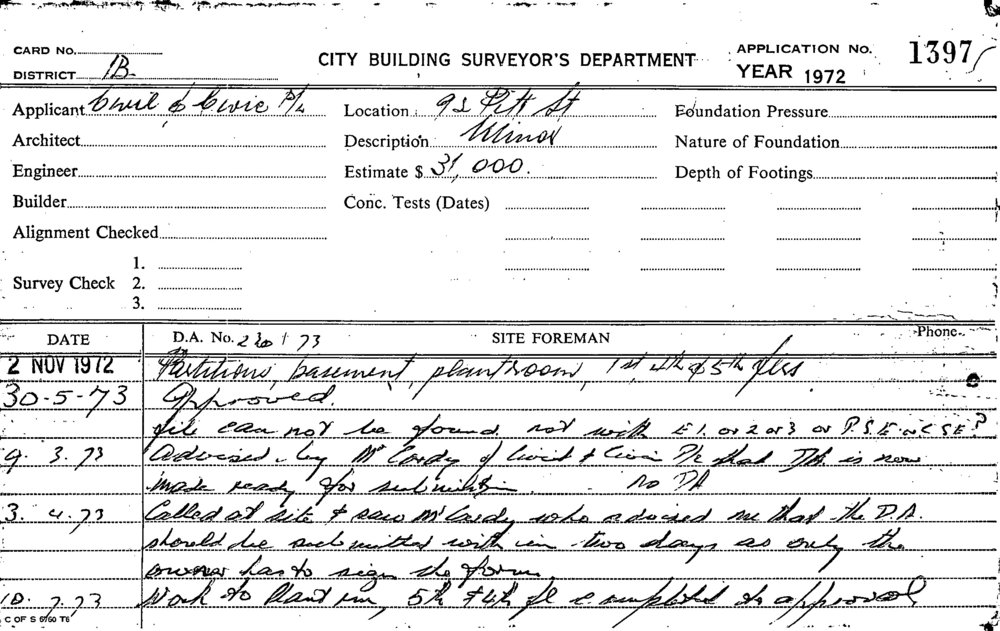 CARD No.
DISTRICT 1B
CITY BUILDING SURVEYOR'S DEPARTMENT
APPLICATION No. 1397/
YEAR 1972
Applicant Civil & Civic P/L
Location 92 Pitt St
Foundation Pressure
Architect
Description Minor
Nature of Foundation
Engineer
Estimate $ 31,000.
Depth of Footings
Builder
Conc. Tests (Dates)
Alignment Checked
1.
Survey Check 2.
3.
DATE
D.A. No. 73
SITE FOREMAN
Phone
2 NOV 1972 Partitions, basement, plantroom, 1st, 4th & 5th flrs
30-5-73 Approved.
file can not be found. not with E1. or 2 or 3 or P.S.E. or C S E?
9. 3. 73 Advised by McCardy of Civil & Civic P/L that DA. is now
made ready for submission. No DA
3. 4. 73 Called at site & saw McCardy who advised me that the D.A.
should be submitted with in two days as only the
owner has to sign the form.
10. 7. 73 Work to Plant rm, 5th & 4th fl completed to approval
C OF S 6760 T6